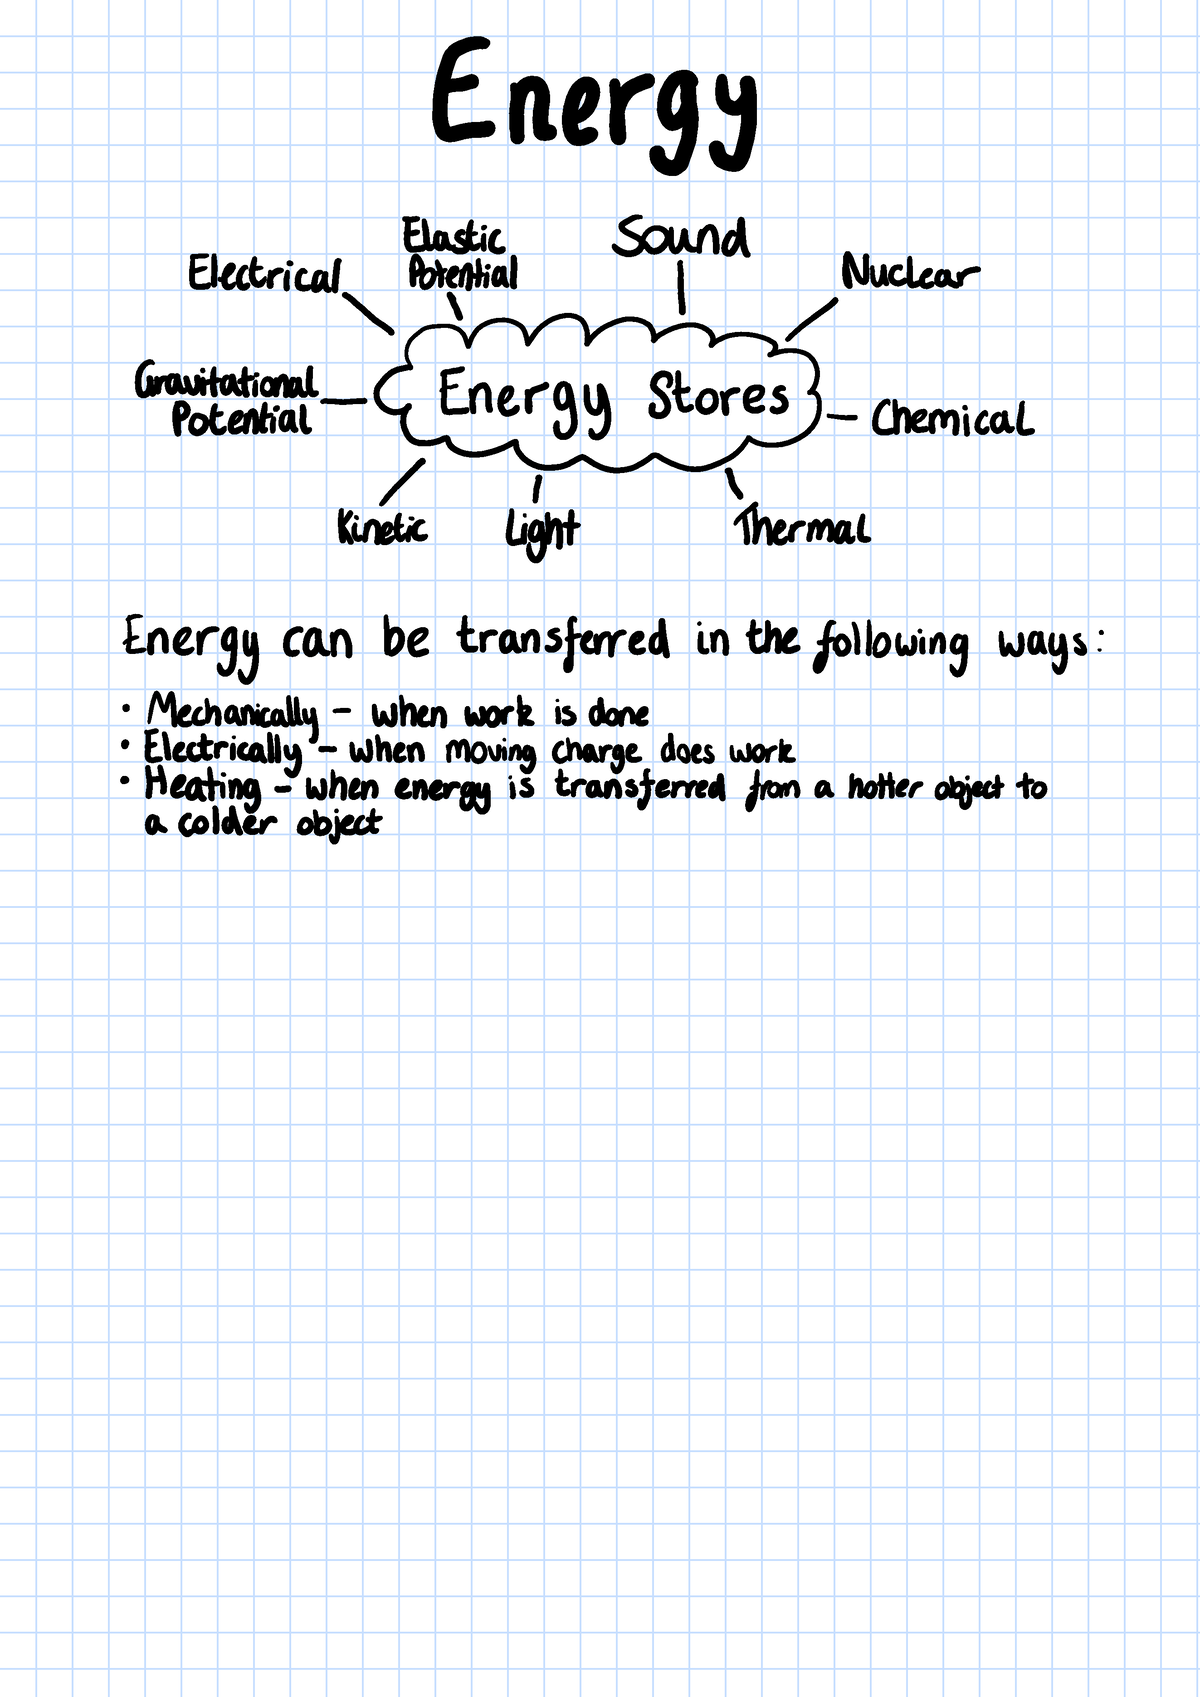 Energy
Elastic
Potential
Sound
Electrical
Nuclear
Gravitational
Potential
Energy Stores
Chemical
Kinetic
Light
Thermal
Energy can be transferred in the following ways:
• Mechanically – when work is done
• Electrically – when moving charge does work
• Heating – when energy is transferred from a hotter object to
a colder object